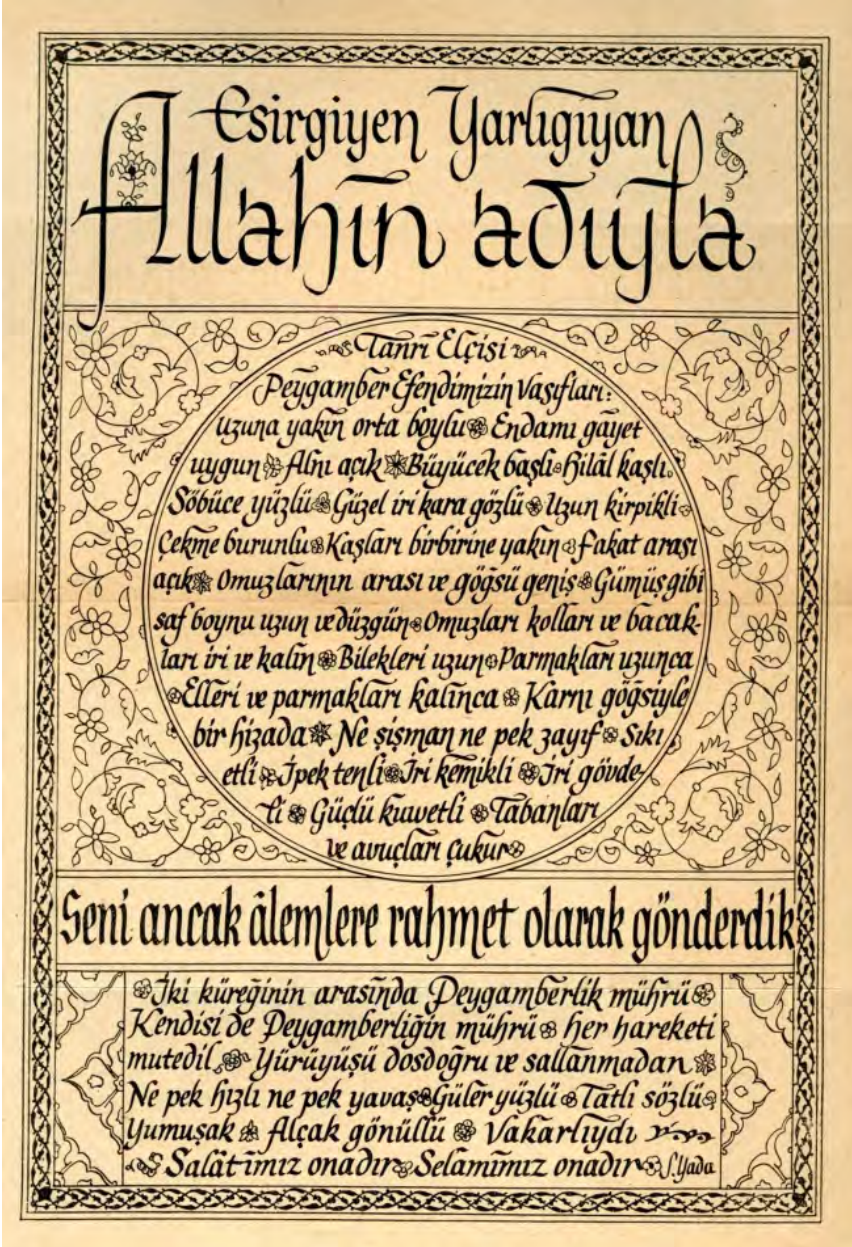 Esirgiyen Yarlıgıyan
Allahın adıyla
Tanrı Elçisi
Peygamber Efendimizin Vasıfları:
uzuna yakın orta boylu Endamı gayet
uygun Alnı açık Büyücek başlı Hilâl kaşlı
Söbüce yüzlü Güzel iri kara gözlü Uzun kirpikli
Çekme burunlu Kaşları birbirine yakın fakat arası
açık Omuzlarının arası ve göğsü geniş Gümüş gibi
saf boynu uzun ve düzgün Omuzları kolları ve bacak-
ları iri ve kalın Bilekleri uzun Parmakları uzunca
Elleri ve parmakları kalınca Karnı göğsiyle
bir hizada Ne şişman ne pek zayıf Sıkı
etli İpek tenli İri kemikli İri gövde-
li Güçlü kuvvetli Tabanları
ve avuçları çukur
Seni ancak âlemlere rahmet olarak gönderdik
İki küreğinin arasında Peygamberlik mührü
Kendisi de Peygamberliğin mührü her hareketi
mutedil Yürüyüşü dosdoğru ve sallanmadan
Ne pek hızlı ne pek yavaş Güler yüzlü Tatlı sözlü
Yumuşak Alçak gönüllü Vakarlıydı
Salâtımız onadır Selâmımız onadır S.Yada